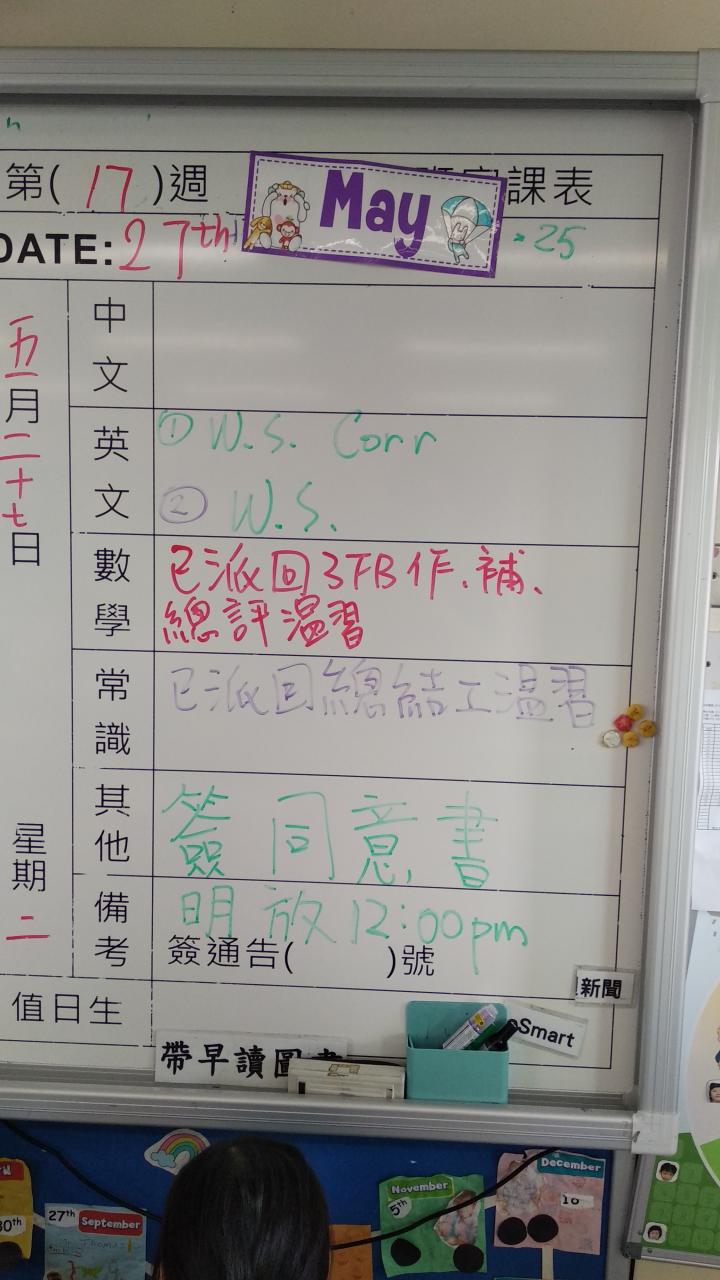 第( 17 )週
May
課表
DATE: 27th
.25
五月二十七日
星期二
中文
英文
① W.S. Corr
② W.S.
數學
已派回3TB作、補、
總評溫習
常識
已派回總結工溫習
其他
簽同意書
備考
明放12:00pm
簽通告( )號
值日生
新聞
eSmart
帶早讀圖書
27th September
November
5th
December
10
30th